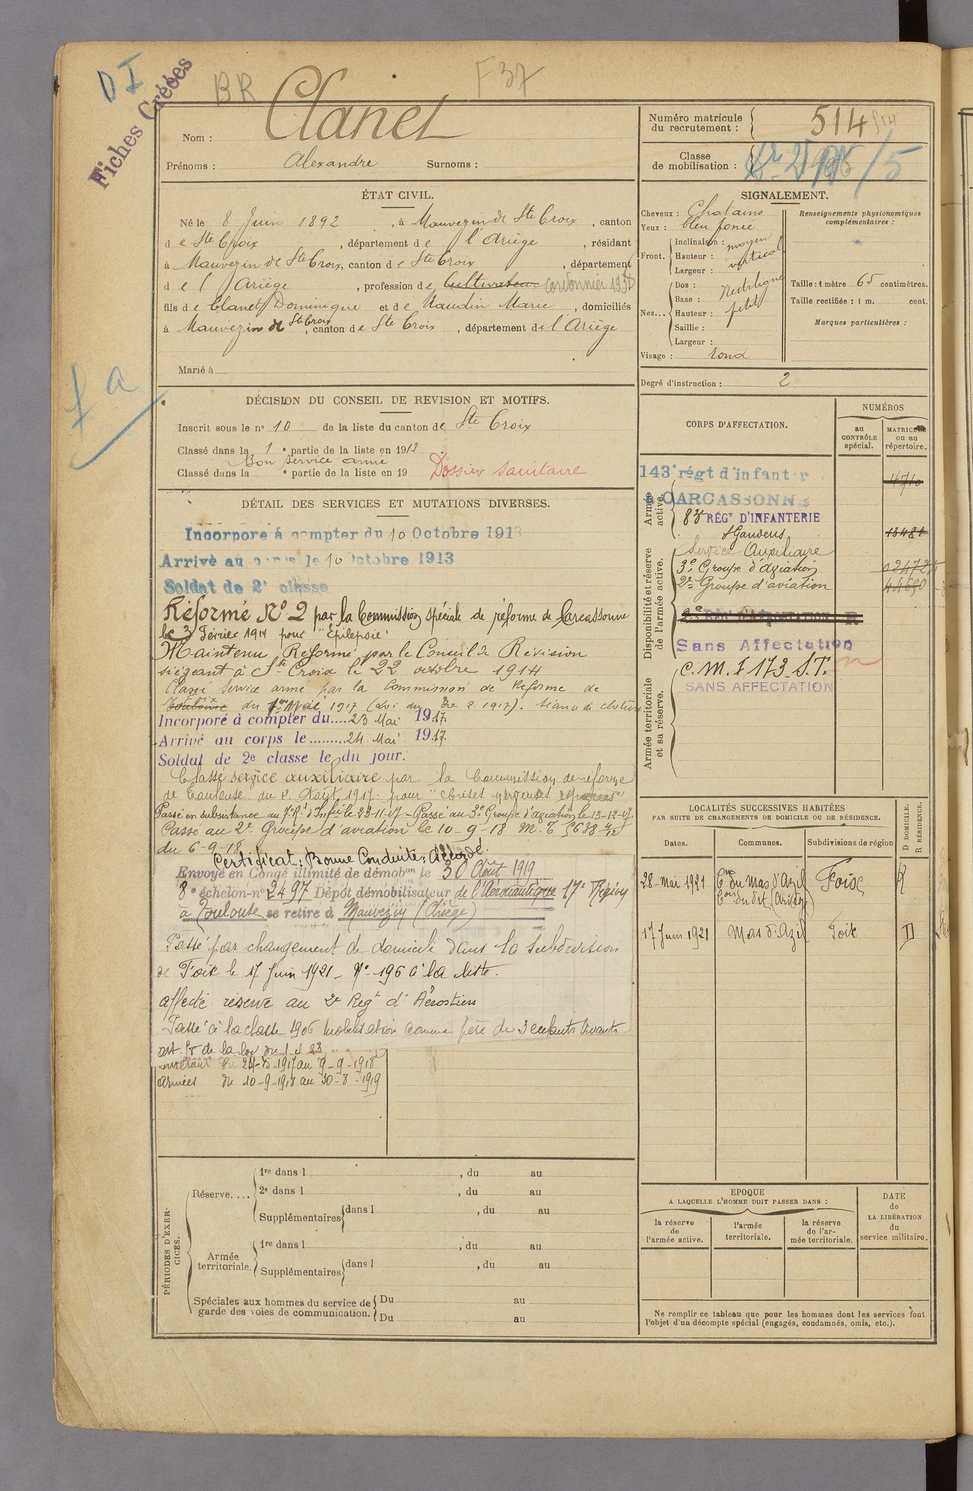 D I
Fiches Créées
BR
F 37
Nom : Clanet
Prénoms : Alexandre Surnoms :
Numéro matricule du recrutement : 514
Classe de mobilisation :
ÉTAT CIVIL.
Né le 8 Juin 1892, à Mauvezin de Ste Croix, canton
de Ste Croix, département de l'Ariège, résidant
à Mauvezin de Ste Croix, canton de Ste Croix, département
de l'Ariège, profession de Cultivateur Cordonnier
fils de Clanet Dominique et de Naudin Marie, domiciliés
à Mauvezin de Ste Croix, canton de Ste Croix, département de l'Ariège
Marié à
SIGNALEMENT.
Cheveux : Chatains
Yeux : bleu foncé
Front. Inclinaison : moyen
Hauteur : vertical
Largeur :
Nez... Dos : Rectiligne
Base :
Hauteur : petit
Saillie :
Largeur :
Visage : rond
Renseignements physionomiques complémentaires :
Taille : 1 mètre 65 centimètres.
Taille rectifiée : 1 m. cent.
Marques particulières :
Degré d'instruction : 2
fa
DÉCISION DU CONSEIL DE REVISION ET MOTIFS.
Inscrit sous le n° 10 de la liste du canton de Ste Croix
Classé dans la 1e partie de la liste en 1913
Bon service armé
Classé dans la e partie de la liste en 19
Dossier sanitaire
DÉTAIL DES SERVICES ET MUTATIONS DIVERSES.
Incorporé à compter du 10 Octobre 1913
Arrivé au corps le 10 Octobre 1913
Soldat de 2e classe
Réformé N° 2 par la Commission spéciale de réforme de Carcassonne
le 3 Février 1914 pour "Epilepsie"
Maintenu Réformé par le Conseil de Révision
siégeant à Ste Croix le 22 octobre 1914
Classé service armé par la Commission de Réforme de
Toulouse du 1er Mai 1917 (Loi du 20 2 1917). séance de clôture
Incorporé à compter du.... 23 Mai 1917.
Arrivé au corps le......... 24 Mai 1917.
Soldat de 2e classe le du jour.
Classé service auxiliaire par la Commission de réforme
de Toulouse du 2 Août 1917 pour
Passé en subsistance au 7e Rgt d'Infie le 23-11-17 - Passé au 3e Groupe d'aviation le 13-12-17
Passé au 2e Groupe d'aviation le 10-9-18 M.T
du 6-9-18
Certificat : Bonne Conduite : Accordé.
Envoyé en Congé illimité de démobon le 30 Août 1919
8e échelon - n° 2497 Dépôt démobilisateur de l'Aéronautique 17e Région
à Toulouse se retire à Mauvezin (Ariège)
Passé par changement de domicile dans la subdivision
de Foix le 17 Juin 1921 - N° 196 à la liste.
affecté réserve au 2e Regt d'Aérostiers
Passé à la classe 1906 mobilisation comme père de 3 enfants vivants
art. 58 de la loi du 1-4-23
Intérieur du 24-5-1917 au 9-9-1918
Armées du 10-9-1918 au 30-8-1919
CORPS D'AFFECTATION.
NUMÉROS
au CONTRÔLE spécial.
MATRICULE ou au répertoire.
Armée active.
Disponibilité et réserve de l'armée active.
Armée territoriale et sa réserve.
143e régt d'infanterie
à CARCASSONNE
83e RÉGt D'INFANTERIE
St Gaudens
Service Auxiliaire
3e Groupe d'aviation
2e Groupe d'aviation
Sans Affectation
C.M.I 173 S.T.
SANS AFFECTATION
LOCALITÉS SUCCESSIVES HABITÉES
PAR SUITE DE CHANGEMENTS DE DOMICILE OU DE RÉSIDENCE.
Dates. Communes. Subdivisions de région D DOMICILE. R RÉSIDENCE.
28 Mai 1921 Cne du Mas d'Azil Foix R
17 Juin 1921 Mas d'Azil Foix D
PÉRIODES D'EXERCICES.
Réserve.... 1re dans l , du au
2e dans l , du au
Supplémentaires dans l , du au
Armée territoriale. 1re dans l , du au
Supplémentaires dans l , du au
Spéciales aux hommes du service de garde des voies de communication. Du au
Du au
EPOQUE
A LAQUELLE L'HOMME DOIT PASSER DANS :
la réserve de l'armée active.
l'armée territoriale.
la réserve de l'armée territoriale.
DATE de LA LIBÉRATION du service militaire.
Ne remplir ce tableau que pour les hommes dont les services font
l'objet d'un décompte spécial (engagés, condamnés, omis, etc.).